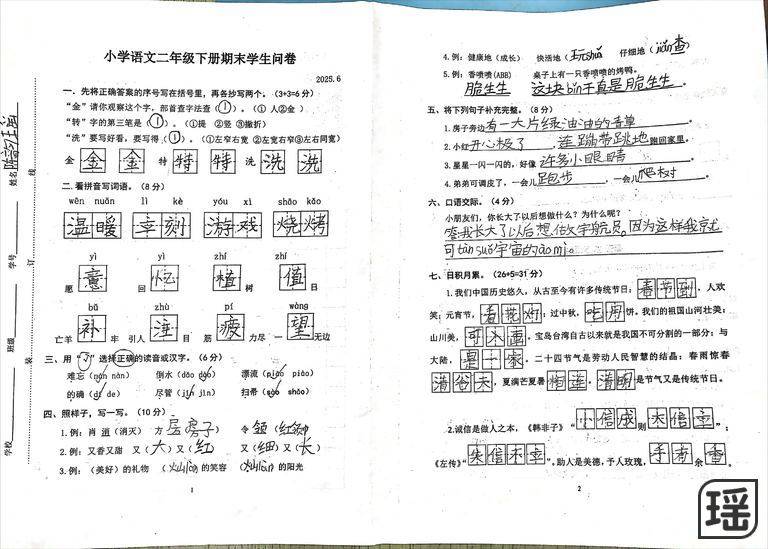 小学语文二年级下册期末学生问卷
2025.6
一、先将正确答案的序号写在括号里，再各抄写两个。（3+3=6分）
“金”请你观察这个字，部首查字法查（①）。（①人②金）
“转”字的第三笔是（①）。（①提 ②竖 ③撇折）
“洗”要写好看，要写得（①）（①左窄右宽 ②左宽右窄③左右同宽）
金 金 金 特 特 特 洗 洗 洗
二、看拼音写词语。（8分）
wēn nuǎn lì kè yóu xì shāo kǎo
温暖 幸刻 游戏 烧烤
yì yì zhí zhí
愿意 回忆 植树 值日
bǔ zhù pí wàng
亡羊补牢 引人注目 筋疲力尽 一望无边
三、用“√”选择正确的读音或汉字。（6分）
难忘（nán nàn） 倒水（dǎo dào） 漂流（piān piāo）
的确（dí de） 尽管（jǐn jìn） 扫帚（sǎo shǎo）
四、照样子，写一写。（10分）
1.例：肖 消（消灭） 方 房（房子） 令 领（红领）
2.例：又香又甜 又（大）又（红） 又（细）又（长）
3.例：（美好）的礼物 （灿làn）的笑容 （灿làn）的阳光
1
学校 班级 学号 姓名
装 订 线
4.例：健康地（成长） 快活地（玩shuǎ） 仔细地（jiǎn查）
5.例：香喷喷(ABB) 桌子上有一只香喷喷的烤鸭。
脆生生 这块bǐng干真是脆生生。
五、将下列句子补充完整。（8分）
1.房子旁边有一大片绿油油的
2.小红开心极了，连蹦带跳地蹦回家里。
3.星星一闪一闪的，好像许多小眼睛。
4.弟弟可调皮了，一会儿跑步，一会儿爬树。
六、口语交际。（4分）
小朋友们，你长大了以后想做什么？为什么呢？
答我长大了以后想做宇航员。因为这样我就
可tàn suǒ宇宙的ào mì。
七、日积月累。（26+5=31分）
1.我们中国历史悠久，从古至今有许多传统节日：春节到，人欢
笑；元宵节，看花灯；过中秋，吃月饼。我们的祖国山河壮美：
山川美，可入画。宝岛台湾自古以来就是我国不可分割的一部分：与
大陆，是一家。二十四节气是劳动人民智慧的结晶：春雨惊春
清谷天，夏满芒夏暑相连。清明是节气又是传统节日。
2.诚信是做人之本，《韩非子》“小信成则大信立”；
《左传》“失信不立”。助人是美德，予人玫瑰，手有余香。
2
瑶